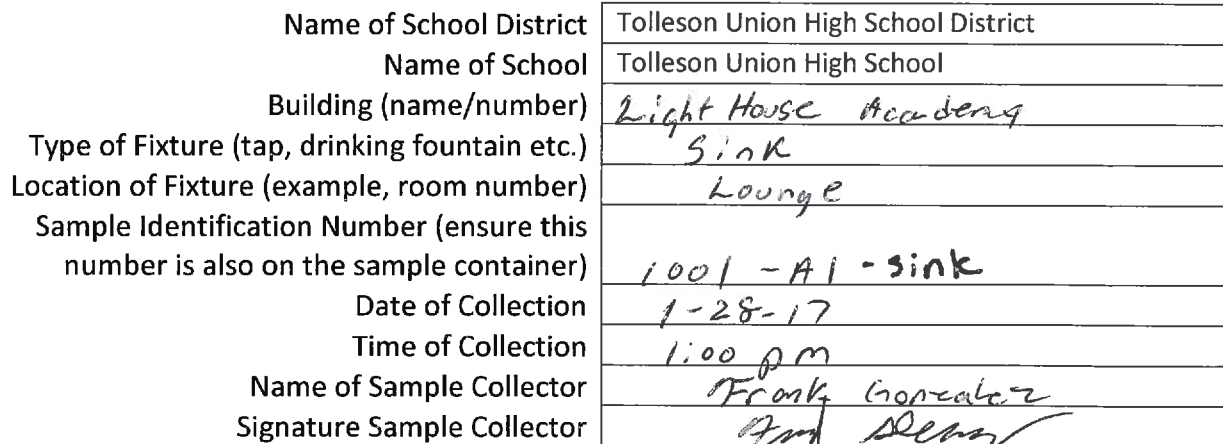 Name of School District Tolleson Union High School District
Name of School Tolleson Union High School
Building (name/number) Light House Academy
Type of Fixture (tap, drinking fountain etc.) Sink
Location of Fixture (example, room number) Lounge
Sample Identification Number (ensure this
number is also on the sample container) 1001 - A1 - sink
Date of Collection 1-28-17
Time of Collection 1:00 pm
Name of Sample Collector Frank Gonzalez
Signature Sample Collector